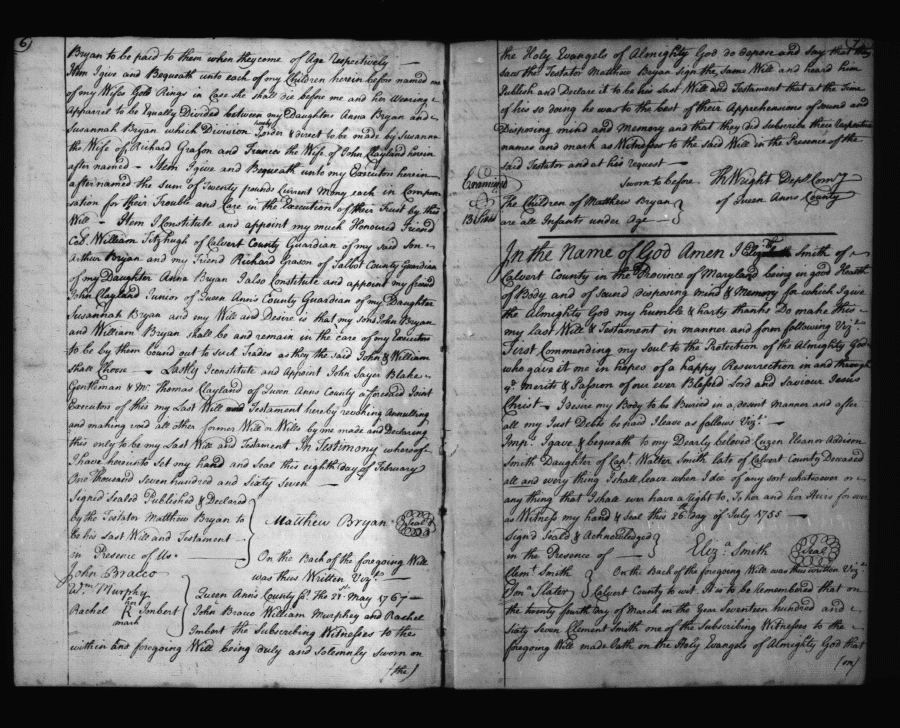 6)
Bryan to be paid to them when they come of Age Respectively —
Item I give and Bequeath unto each of my Children herein before named
of my Wifes Gold Rings in Case she shall die before me and her Wearing
Apparrel to be Equally Divided between my Daughters Anna Bryan and
Susannah Bryan which Division I order & direct to be made by Susanna
the Wife of Richard Grason and Frances the Wife of John Clayland herein
after named — Item I give and Bequeath unto my Executors herein
after named the sum of Twenty pounds Current Mony each in Compen
sation for their Trouble and Care in the Execution of their Trust by this
Will — Item I Constitute and appoint my much Honoured Friend
Coll. William Fitzhugh of Calvert County Guardian of my said Son
Arthur Bryan and my Friend Richard Grason of Talbot County Guardian
of my Daughter Anna Bryan I also Constitute and appoint my friend
John Clayland Junior of Queen Ann's County Guardian of my Daughter
Susannah Bryan and my Will and Desire is that my sons John Bryan
and William Bryan shall be and remain in the care of my Executors
to be by them bound out to such Trades as they the said John & William
shall Choose — Lastly I constitute and Appoint John Sayer Blake
Gentleman & Mr. Thomas Clayland of Queen Anns County aforesaid Joint
Executors of this my Last Will and Testament hereby revoking Annulling
and making void all other former Will or Wills by me made and Declaring
this only to be my Last Will and Testament In Testimony whereof
I have hereunto set my hand and Seal this eighth day of February
One thousand Seven hundred and Sixty Seven —
Signed Sealed Published & Declared
by the Testator Matthew Bryan to
be his Last Will and Testament
in Presence of Us
Matthew Bryan Seal
John Bracco
Wm. Murphy
Rachel her R mark Imbert
On the Back of the foregoing Will
was thus Written Vizt.
Queen Ann's County ss. The 28th May 1767 —
John Bracco William Murphey and Rachel
Imbert the Subscribing Witnesses to the
within and foregoing Will being duly and solemnly sworn on
(the)
7)
the Holy Evangels of Almighty God do depose and Say that they
saw the Testator Matthew Bryan sign the same Will and heard him
Publish and Declare it to be his Last Will and Testament that at the Time
of his so doing he was to the best of their Apprehensions of sound and
Disposing mind and Memory and that they did subscribe their Respective
names and mark as Witnesses to the said Will in the Presence of the
said Testator and at his request —
Sworn to before Th Wright Depy. Comy
of Queen Anns County
Examined
The Children of Matthew Bryan
are all Infants under Age
In the Name of God Amen I Smith of
Calvert County in the Province of Maryland being in good Health
of Body and of sound disposing mind & Memory for which I give
the Almighty God my humble & harty thanks Do make this
my last Will & Testament in manner and form following Vizt.
First Commending my Soul to the Protection of the Almighty God
who gave it me in hopes of a happy Resurrection in and through
ye. merits & Passion of our ever Blessed Lord and Saviour Jesus
Christ. I desire my Body to be Buried in a decent manner and after
all my Just Debts be paid I leave as follows Vizt.
Impr. I gave & bequeath to my Dearly beloved Cuzen Eleanor Addison
Smith Daughter of Capt. Walter Smith late of Calvert County Deceased
all and every thing I shall leave when I die of any sort whatsoever or
any thing that I shall ever have a right to, To her and her Heirs for ever
as Witness my hand & Seal this 26th. Day of July 1755 —
Sign'd Seald & Acknowledged
in the Presence of —
Eliza. Smith Seal
Clemt. Smith
Jona. Slater
On the Back of the foregoing Will was thus written Vizt.
Calvert County to wit. It is to be Remembered that on
the twenty fourth day of March in the Year Seventeen hundred and
Sixty Seven Clement Smith one of the Subscribing Witnesses to the
foregoing Will made Oath on the Holy Evangels of Almighty God that
(on)